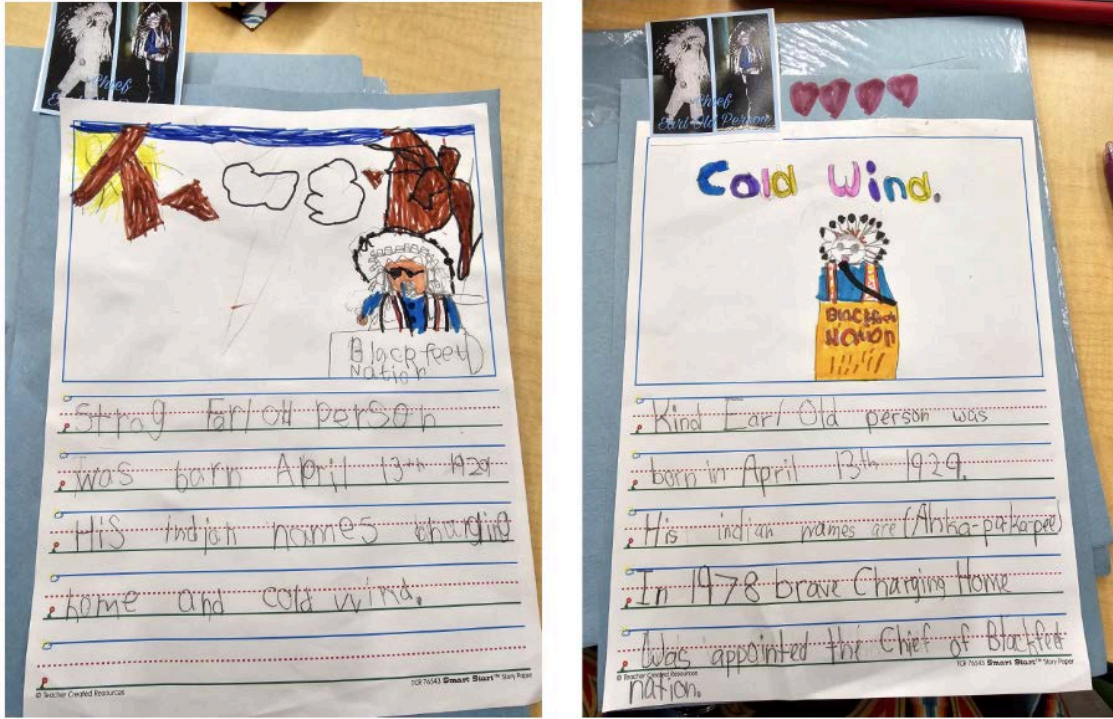 Chief
Earl Old Person
Blackfeet
Nation
Strog Earl old person
was barn April 13th 1929
His indian names charging
home and cold wind.
© Teacher Created Resources
TCR 76543 Smart Start™ Story Paper
Chief
Earl Old Person
Cold Wind.
Blackfeet
Nation
Kind Earl Old person was
born in April 13th 1929.
His indian names are (Ahka-pa-ka-pee)
In 1978 brave Charging Home
Was appointed the Chief of Blackfeet
nation.
© Teacher Created Resources
TCR 76543 Smart Start™ Story Paper